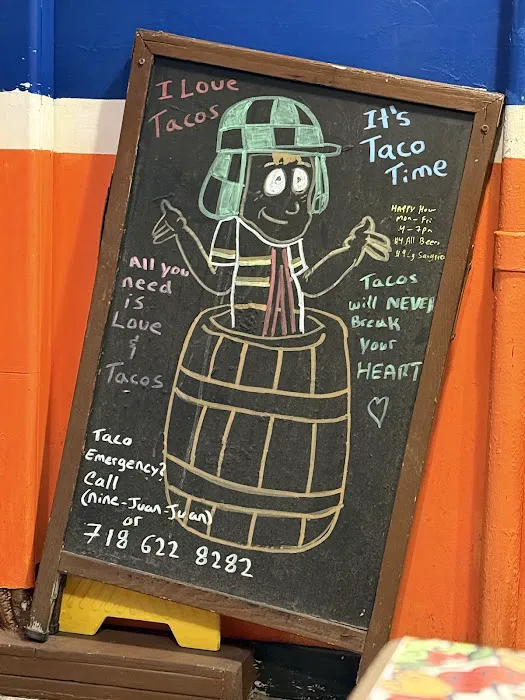 I Love
Tacos
It's
Taco
Time
HAPPY Hour
Mon - Fri
4 - 7pm
$4 All Beers
Sangria
All you
need
is
Love
&
Tacos
Tacos
will NEVER
Break
your
HEART
Taco
Emergency?
Call
(nine-Juan-Juan)
or
718 622 8282